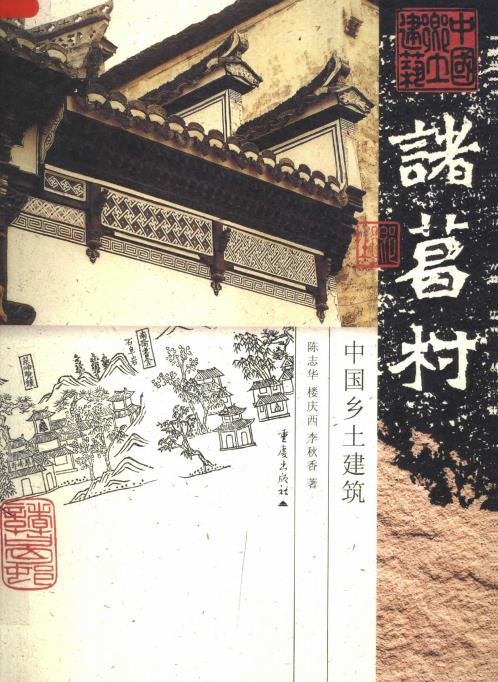 中國鄉土建築
諸葛村
中国乡土建筑
陈志华 楼庆西 李秋香 著
重庆出版社